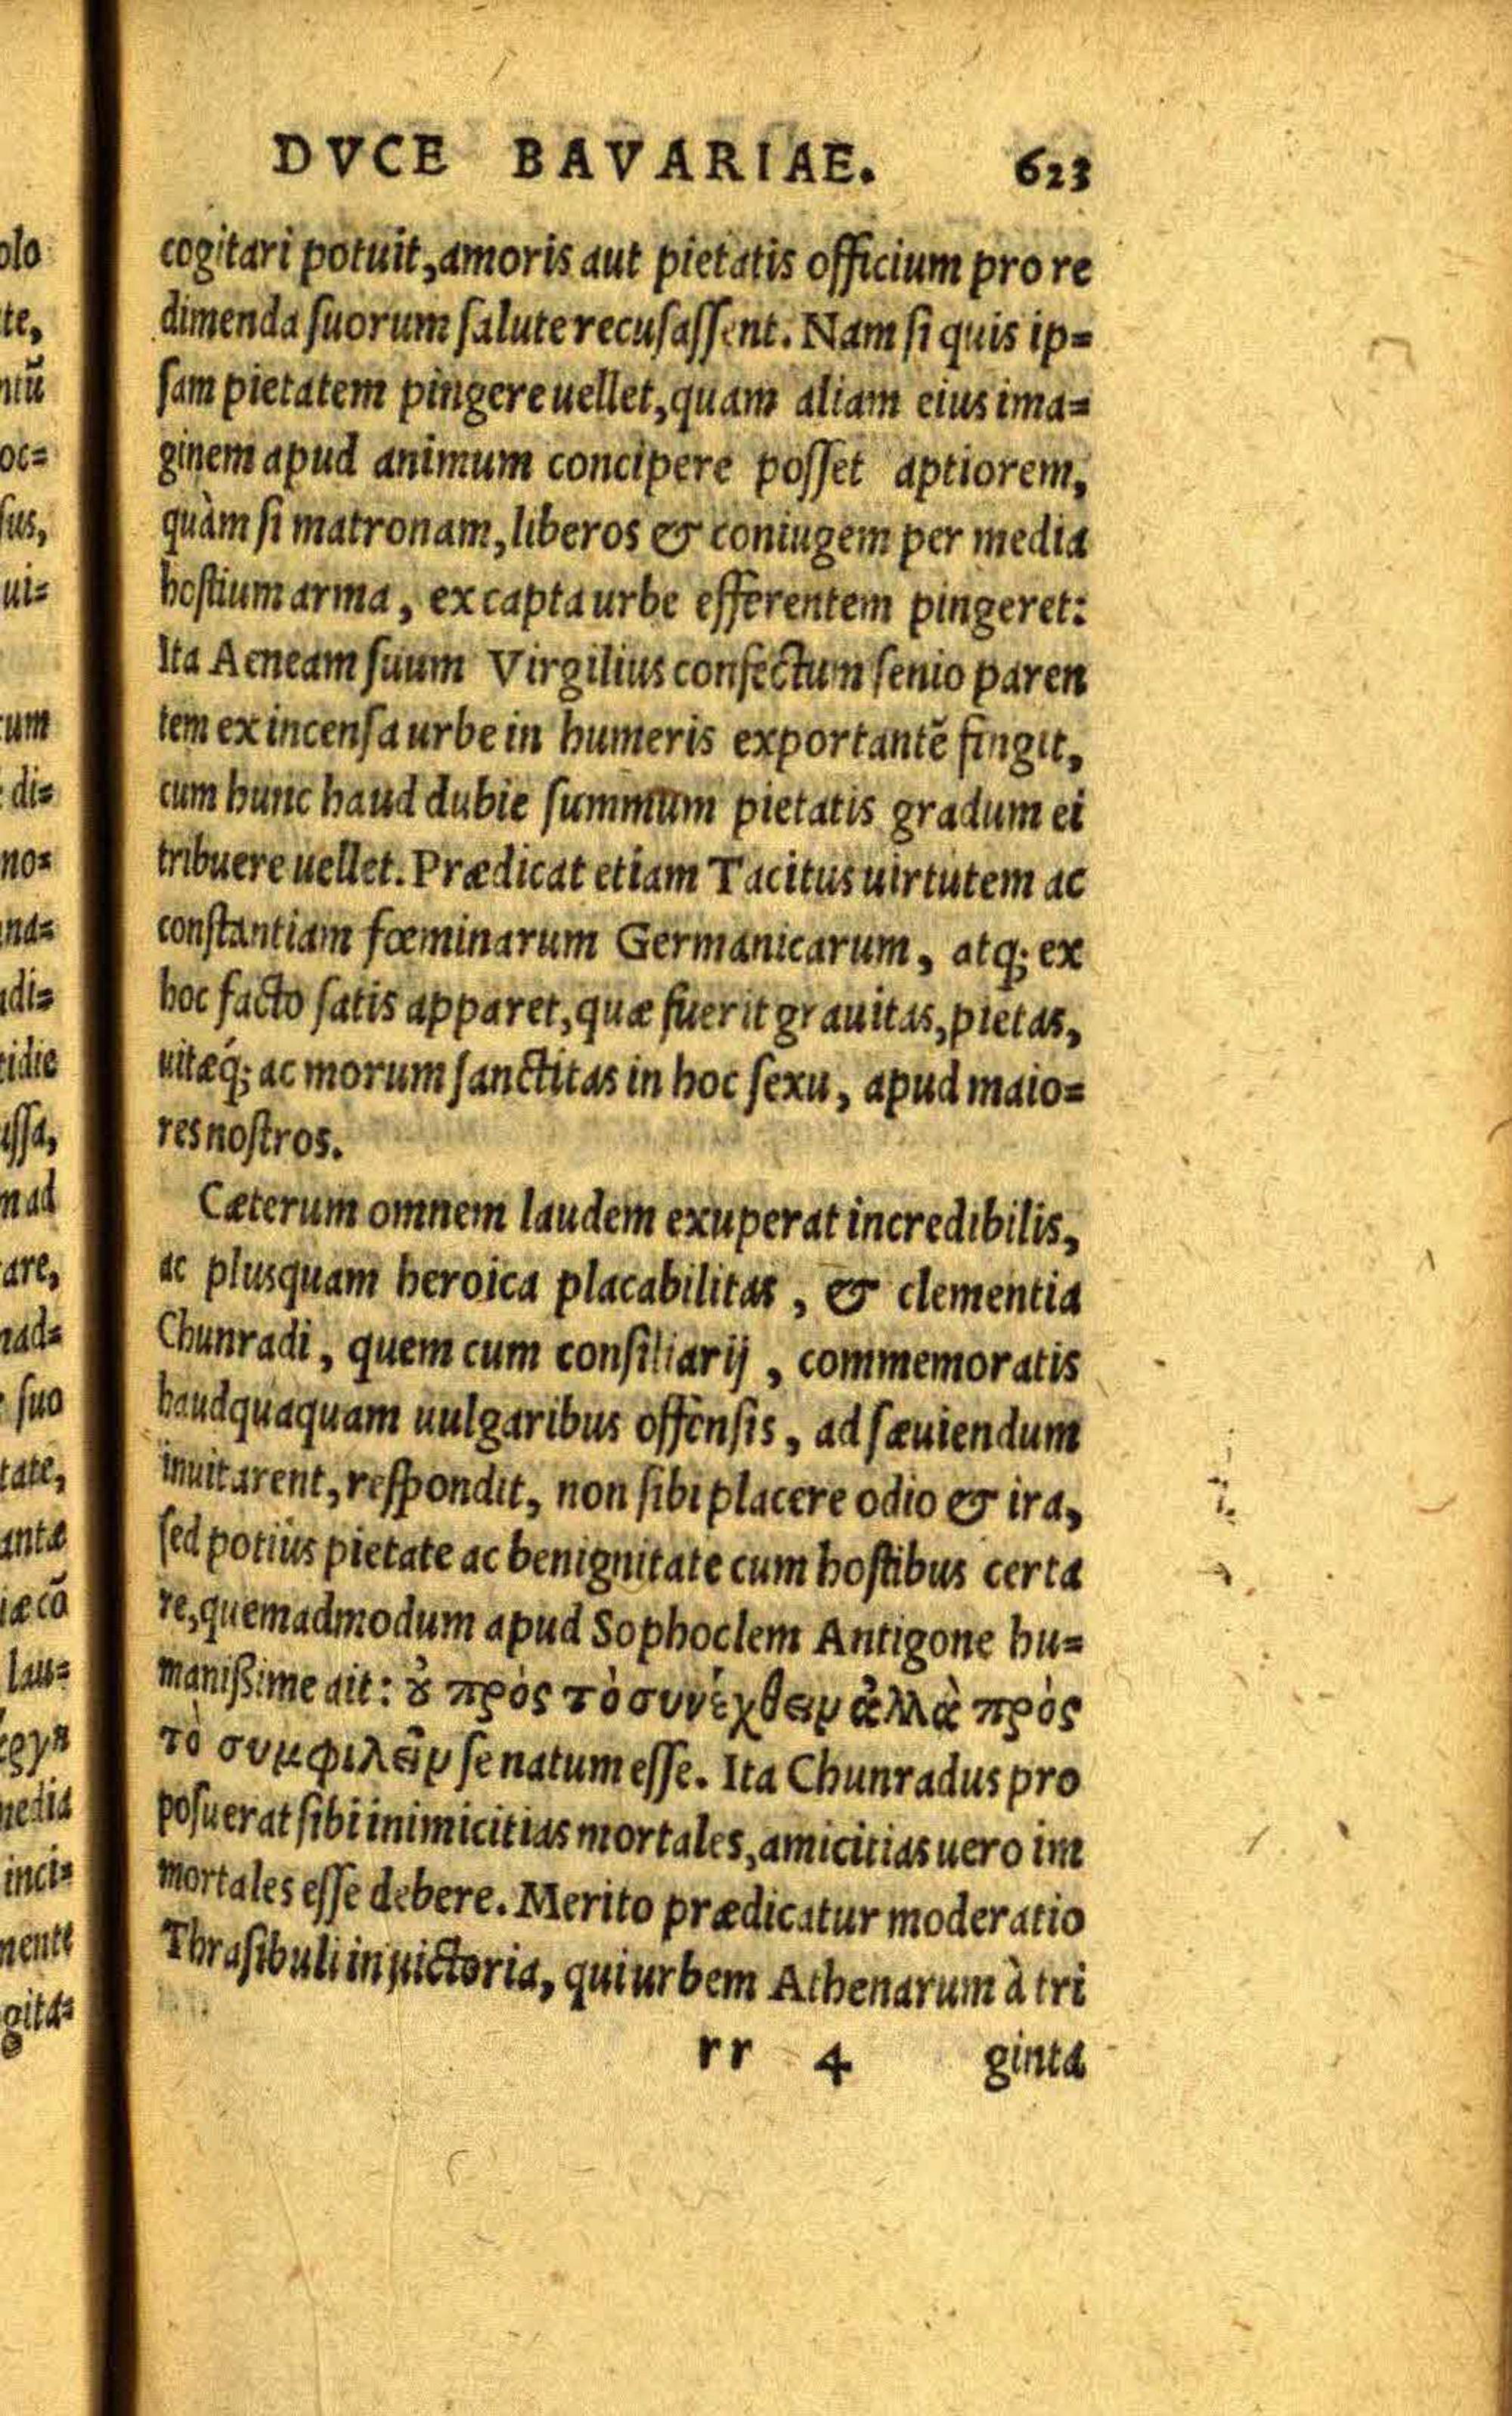 DVCE BAVARIAE. 623
cogitari potuit, amoris aut pietatis officium pro re
dimenda suorum salute recusassent. Nam si quis ip=
sam pietatem pingere uellet, quam aliam eius ima=
ginem apud animum concipere posset aptiorem,
quàm si matronam, liberos & coniugem per media
hostium arma, ex capta urbe efferentem pingeret:
Ita Aeneam suum Virgilius confectum senio paren
tem ex incensa urbe in humeris exportantẽ fingit,
cum hunc haud dubie summum pietatis gradum ei
tribuere uellet. Prædicat etiam Tacitus uirtutem ac
constantiam fœminarum Germanicarum, atq; ex
hoc facto satis apparet, quæ fuerit grauitas, pietas,
uitæq́; ac morum sanctitas in hoc sexu, apud maio=
res nostros.
Cæterum omnem laudem exuperat incredibilis,
ac plusquam heroica placabilitas, & clementia
Chunradi, quem cum consiliarij, commemoratis
haudquaquam uulgaribus offensis, ad sæuiendum
inuitarent, respondit, non sibi placere odio & ira,
sed potius pietate ac benignitate cum hostibus certa
re, quemadmodum apud Sophoclem Antigone hu=
manißime ait: ȣ̓ πρὸς τὸ συνέχθειν ἀλλὰ πρὸς
τὸ συμφιλεῖν se natum esse. Ita Chunradus pro
posuerat sibi inimicitias mortales, amicitias uero im
mortales esse debere. Merito prædicatur moderatio
Thrasibuli in uictoria, qui urbem Athenarum à tri
rr 4 ginta